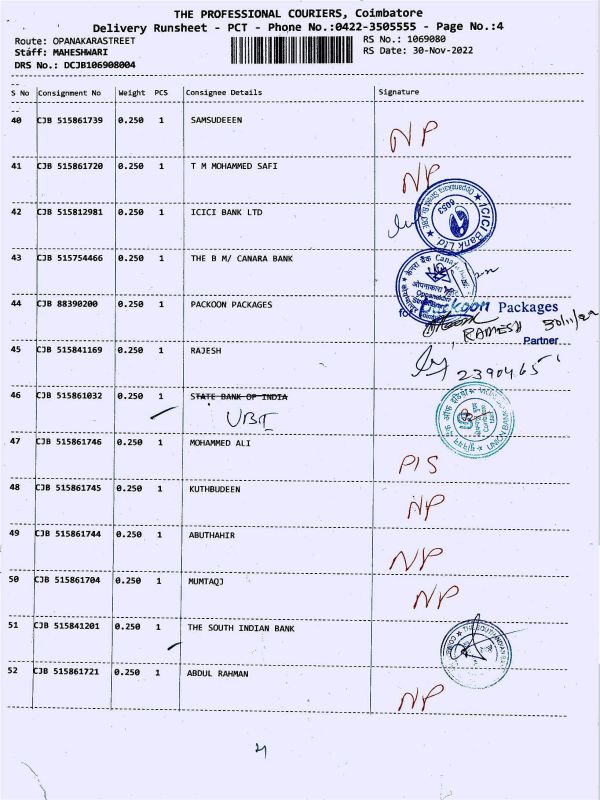 THE PROFESSIONAL COURIERS, Coimbatore
Delivery Runsheet - PCT - Phone No.:0422-3505555 - Page No.:4
Route: OPANAKARASTREET RS No.: 1069080
Staff: MAHESHWARI RS Date: 30-Nov-2022
DRS No.: DCJB106908004
S No Consignment No Weight PCS Consignee Details Signature
40 CJB 515861739 0.250 1 SAMSUDEEEN NP
41 CJB 515861720 0.250 1 T M MOHAMMED SAFI NP
42 CJB 515812981 0.250 1 ICICI BANK LTD
ICICI Bank Ltd
6053
43 CJB 515754466 0.250 1 THE B M/ CANARA BANK
44 CJB 88390200 0.250 1 PACKOON PACKAGES
for Packoon Packages
RAMESH 30/11/22
Partner
45 CJB 515841169 0.250 1 RAJESH
2390465
46 CJB 515861032 0.250 1 STATE BANK OF INDIA
UBI
UNION BANK
47 CJB 515861746 0.250 1 MOHAMMED ALI P1S
48 CJB 515861745 0.250 1 KUTHBUDEEN NP
49 CJB 515861744 0.250 1 ABUTHAHIR NP
50 CJB 515861704 0.250 1 MUMTAQJ NP
51 CJB 515841201 0.250 1 THE SOUTH INDIAN BANK
THE SOUTH INDIAN
52 CJB 515861721 0.250 1 ABDUL RAHMAN NP